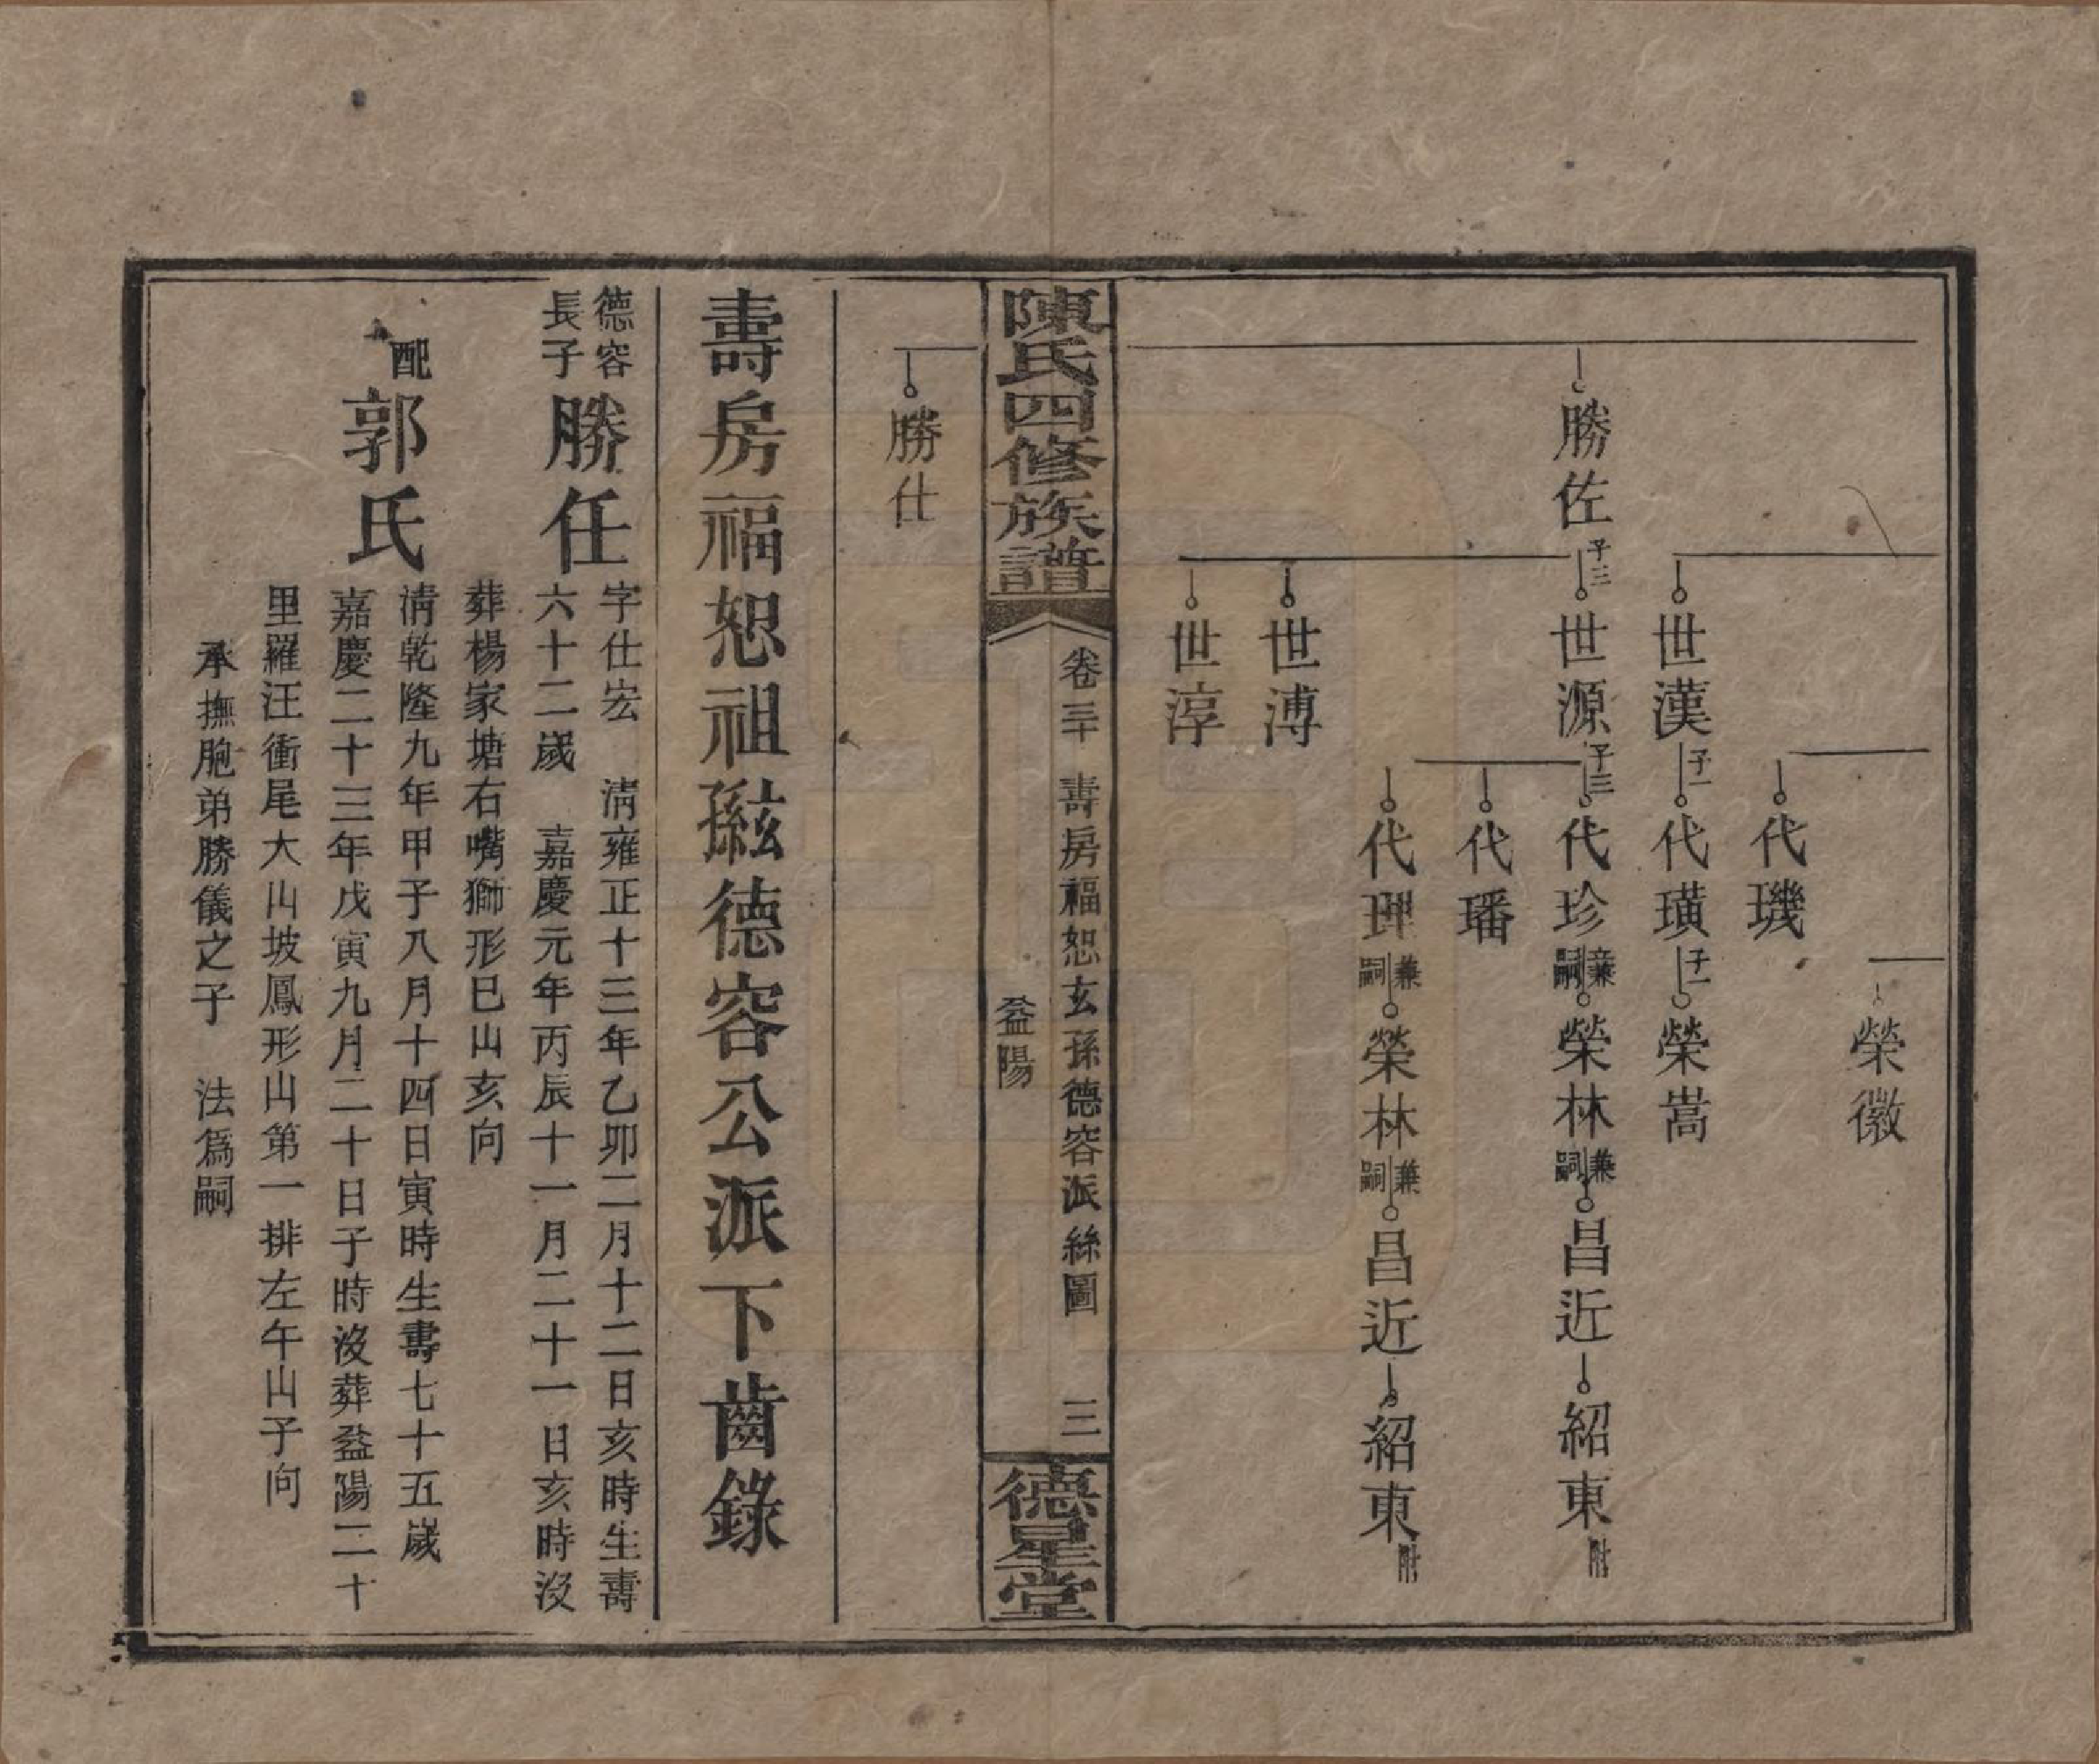 榮徽
代璣
世漢 子一 代璜 子一 榮嵩
勝佐 子三 世源 子三 代珍 兼嗣 榮林 兼嗣 昌近 紹東 附
代璠
代理 兼嗣 榮林 兼嗣 昌近 紹東 附
世溥
世淳
陳氏四修族譜
卷三十 壽房福恕玄孫德容派絲圖 三
益陽
德星堂
勝仕
壽房福恕祖孫玄德容公派下齒錄
德容
長子
勝任
字仕宏 清雍正十三年乙卯二月十二日亥時生壽
六十二歲 嘉慶元年丙辰十一月二十一日亥時沒
葬楊家塘右嘴獅形巳山亥向
配郭氏
清乾隆九年甲子八月十四日寅時生壽七十五歲
嘉慶二十三年戊寅九月二十日子時沒葬益陽二十
里羅汪衝尾大山坡鳳形山第一排左午山子向
承撫胞弟勝儀之子 法爲嗣